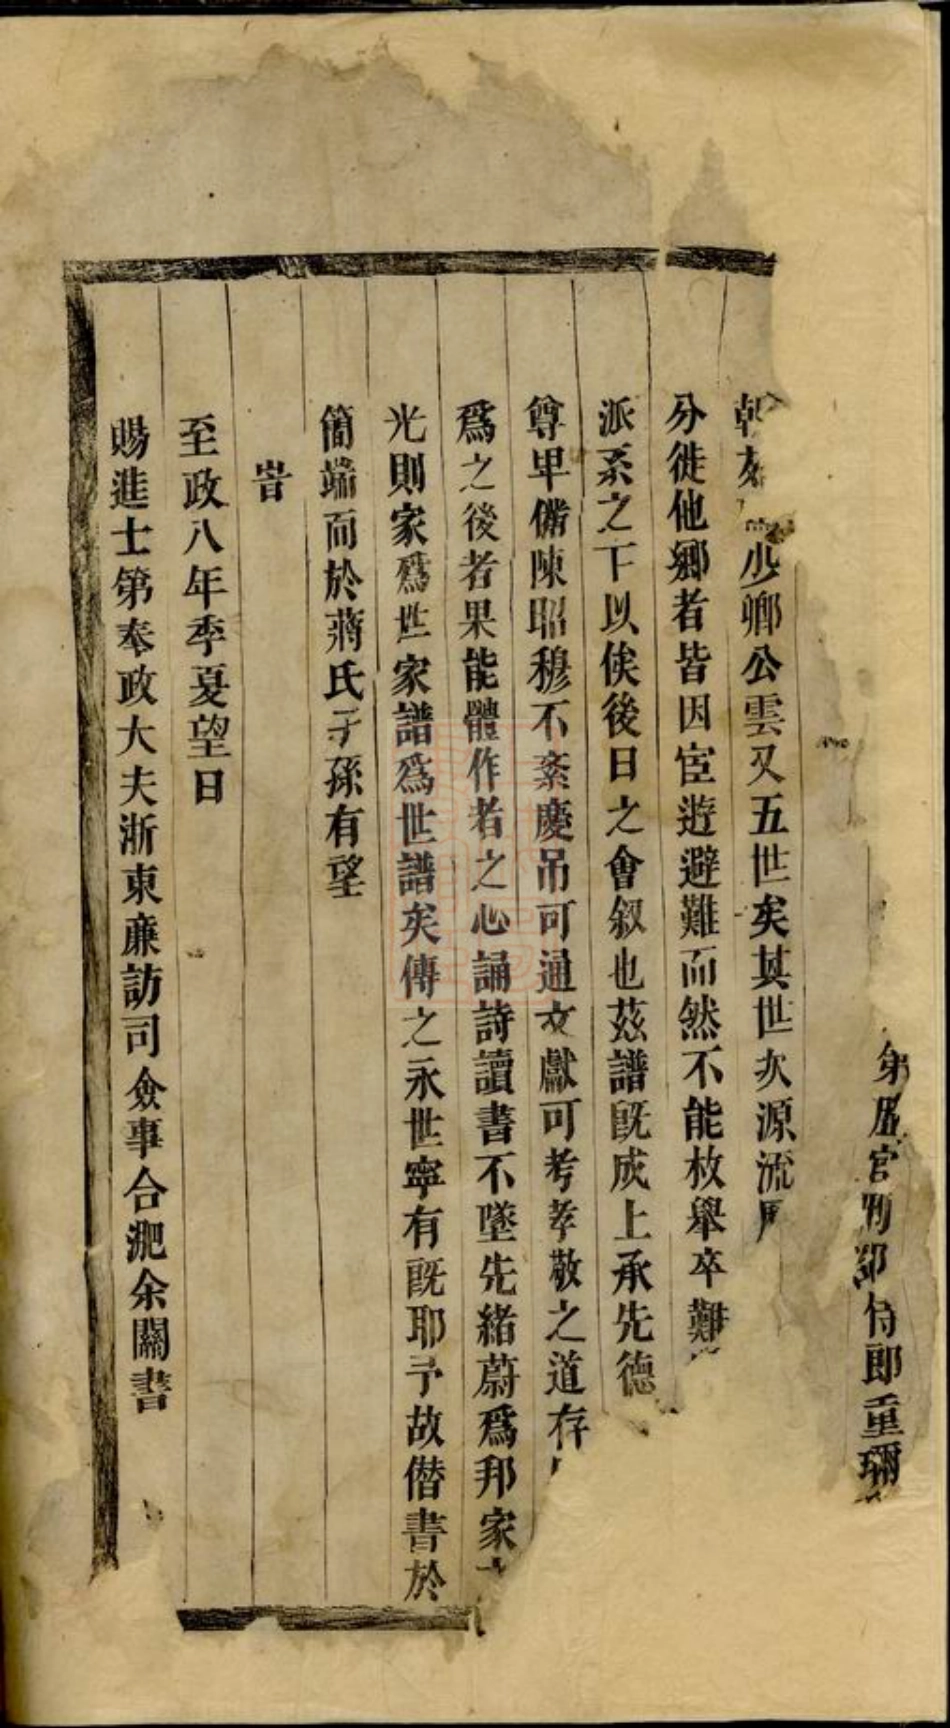 第歷官刑部侍郎重珊
少卿公雲又五世矣其世次源流
分徙他鄉者皆因宦遊避難而然不能枚舉卒難
派系之下以俟後日之會叙也茲譜旣成上承先德
尊卑僃陳昭穆不紊慶吊可通文獻可考孝敬之道存
爲之後者果能體作者之心誦詩讀書不墜先緒蔚爲邦家
光則家爲世家譜爲世譜矣傳之永世寧有旣耶予故僣書於
簡端而於蔣氏子孫有望
旹
至政八年季夏望日
賜進士第奉政大夫浙東廉訪司僉事合淝余闗書